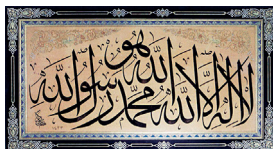 لا إله إلا الله هو محمد رسول الله